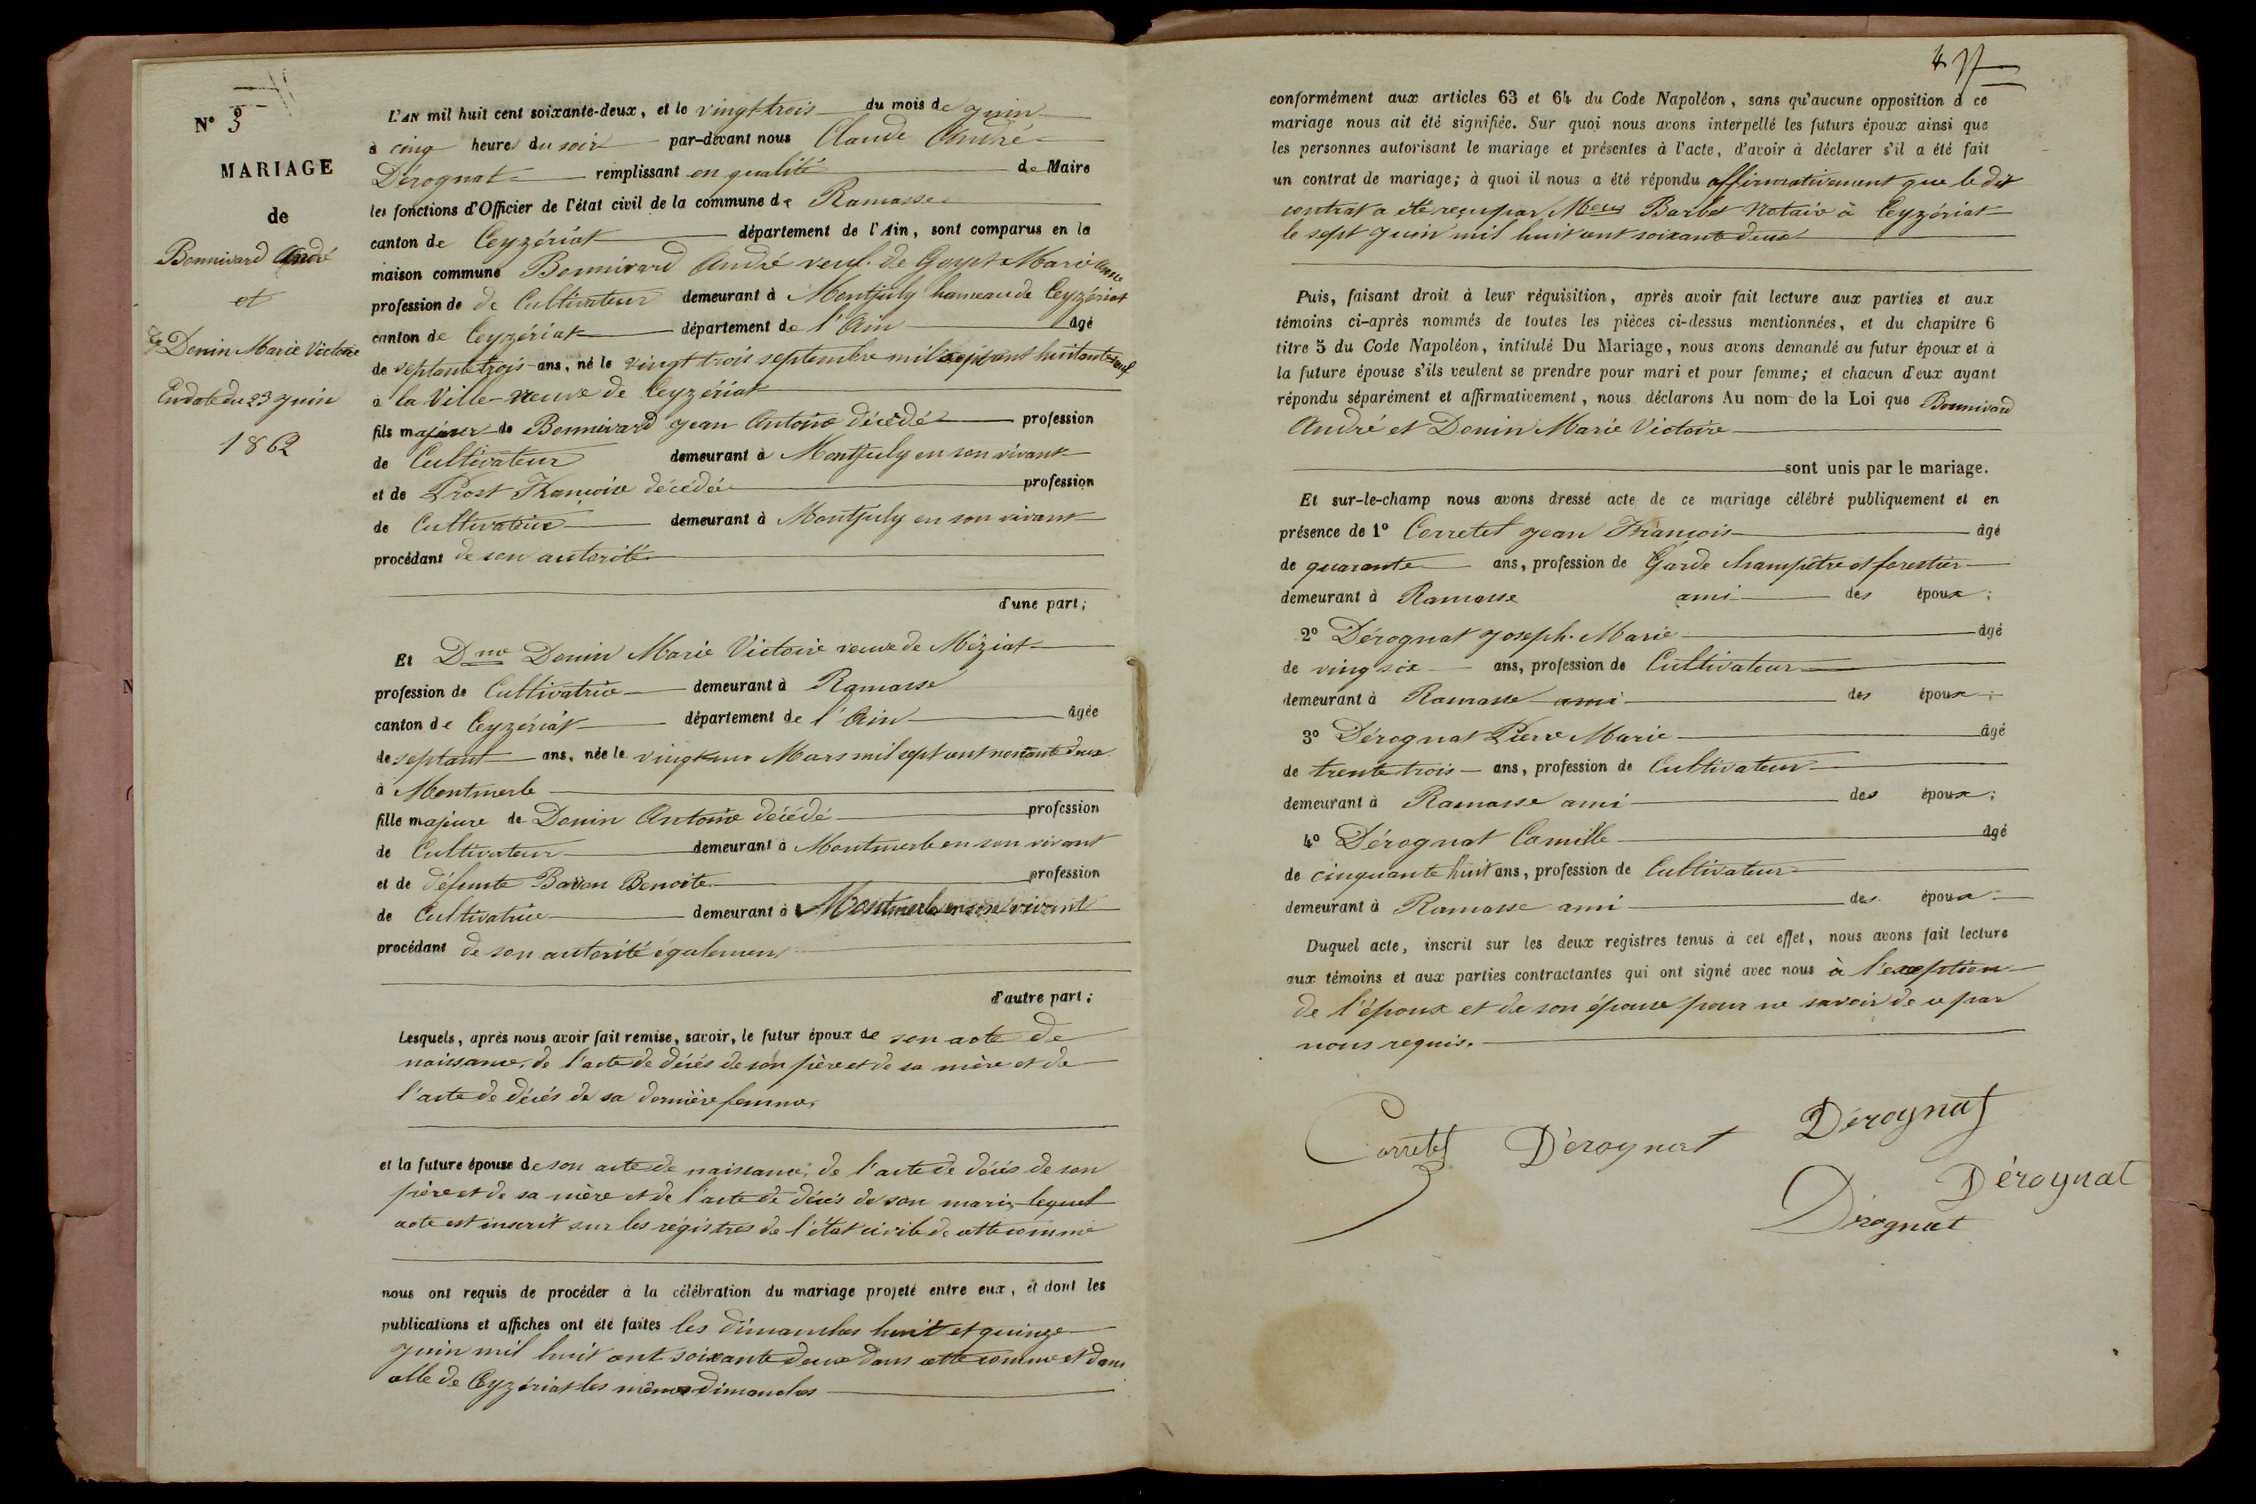 N° 3
MARIAGE
de
Bonnivard André
et
Donin Marie Victoire
En date du 23 Juin
1862
L'AN mil huit cent soixante-deux, et le vingt-trois du mois de Juin
à cinq heures du soir par-devant nous Claude André
Dérognat remplissant en qualité de Maire
les fonctions d'Officier de l'état civil de la commune de Ramasse
canton de Ceyzériat département de l'Ain, sont comparus en la
maison commune Bonnivard André veuf de Goyet Marie Anne
profession de de Cultivateur demeurant à Montjuly hameau de Ceyzériat
canton de Ceyzériat département de l'Ain âgé
de septante trois ans, né le vingt trois septembre mil sept cent huitante neuf
à la Ville neuve de Ceyzériat
fils majeur de Bonnivard Jean Antoine décédé profession
de Cultivateur demeurant à Montjuly en son vivant
et de Prost Françoise décédée profession
de Cultivatrice demeurant à Montjuly en son vivant
procédant de son autorité
d'une part;
Et Dme Donin Marie Victoire veuve de Méziat
profession de Cultivatrice demeurant à Ramasse
canton de Ceyzériat département de l'Ain âgée
de septant ans, née le vingt un Mars mil sept cent nonante deux
à Montmerle
fille majeure de Donin Antoine décédé profession
de Cultivateur demeurant à Montmerle en son vivant
et de défunte Benoite profession
de Cultivatrice demeurant à Montmerle en son vivant
procédant de son autorité également
d'autre part;
Lesquels, après nous avoir fait remise, savoir, le futur époux de son acte de
naissance, de l'acte de décés de son père et de sa mère et de
l'acte de décés de sa dernière femme,
et la future épouse de son acte de naissance, de l'acte de décés de son
père et de sa mère et de l'acte de décés de son mari, lequel
acte est inscrit sur les régistres de l'état civil de cette comme
nous ont requis de procéder à la célébration du mariage projeté entre eux, et dont les
publications et affiches ont été faites les dimanches huit et quinze
Juin mil huit cent soixante deux dans cette comme et dans
celle de Ceyzériat les mêmes dimanches
conformément aux articles 63 et 64 du Code Napoléon, sans qu'aucune opposition à ce
mariage nous ait été signifiée. Sur quoi nous avons interpellé les futurs époux ainsi que
les personnes autorisant le mariage et présentes à l'acte, d'avoir à déclarer s'il a été fait
un contrat de mariage; à quoi il nous a été répondu affirmativement que le dit
contrat a été reçu par Barbet Notaire à Ceyzériat
le sept Juin mil huit cent soixante deux
Puis, faisant droit à leur réquisition, après avoir fait lecture aux parties et aux
témoins ci-après nommés de toutes les pièces ci-dessus mentionnées, et du chapitre 6
titre 5 du Code Napoléon, intitulé Du Mariage, nous avons demandé au futur époux et à
la future épouse s'ils veulent se prendre pour mari et pour femme; et chacun d'eux ayant
répondu séparément et affirmativement, nous déclarons Au nom de la Loi que Bonnivard
André et Donin Marie Victoire
sont unis par le mariage.
Et sur-le-champ nous avons dressé acte de ce mariage célébré publiquement et en
présence de 1° Corretel Jean François âgé
de quarante ans, profession de Garde champêtre et forestier
demeurant à Ramasse ami des époux;
2° Dérognat Joseph Marie âgé
de ving six ans, profession de Cultivateur
demeurant à Ramasse ami des époux;
3° Dérognat Pierre Marie âgé
de trente trois ans, profession de Cultivateur
demeurant à Ramasse ami des époux;
4° Dérognat Camille âgé
de cinquante huit ans, profession de Cultivateur
demeurant à Ramasse ami des époux
Duquel acte, inscrit sur les deux registres tenus à cet effet, nous avons fait lecture
aux témoins et aux parties contractantes qui ont signé avec nous à l'exeption
de l'époux et de son épouse pour ne savoir de ce par
nous requis.
Dérognat
Corretel Dérognat
Dérognat
Dérognat